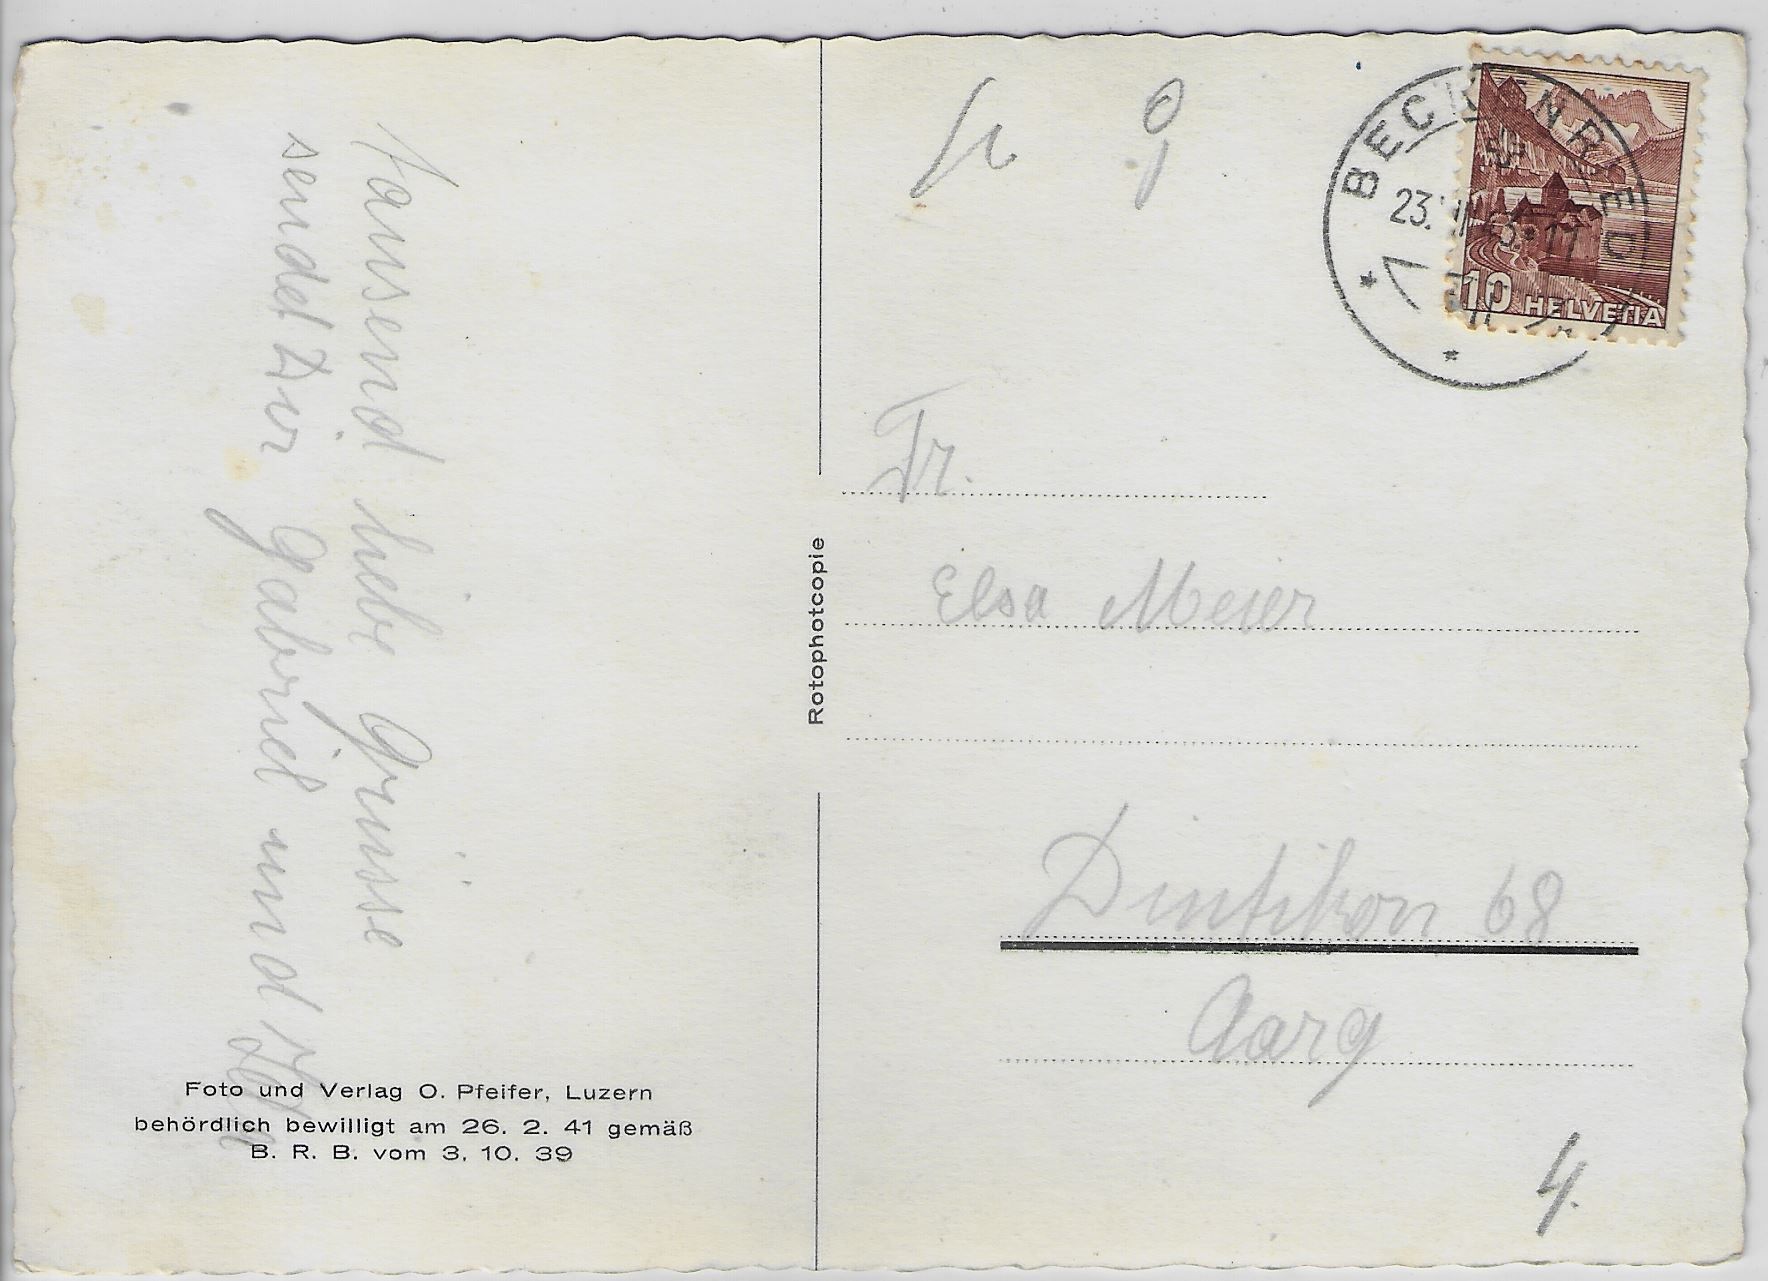 Tausend liebe Grüsse
sendet Dir Gabriel und
Foto und Verlag O. Pfeifer, Luzern
behördlich bewilligt am 26. 2. 41 gemäß
B. R. B. vom 3. 10. 39
Rotophotcopie
BECKENRIED
23.
10 HELVETIA
Fr.
Elsa Meier
Dintikon 68
Aarg
4.